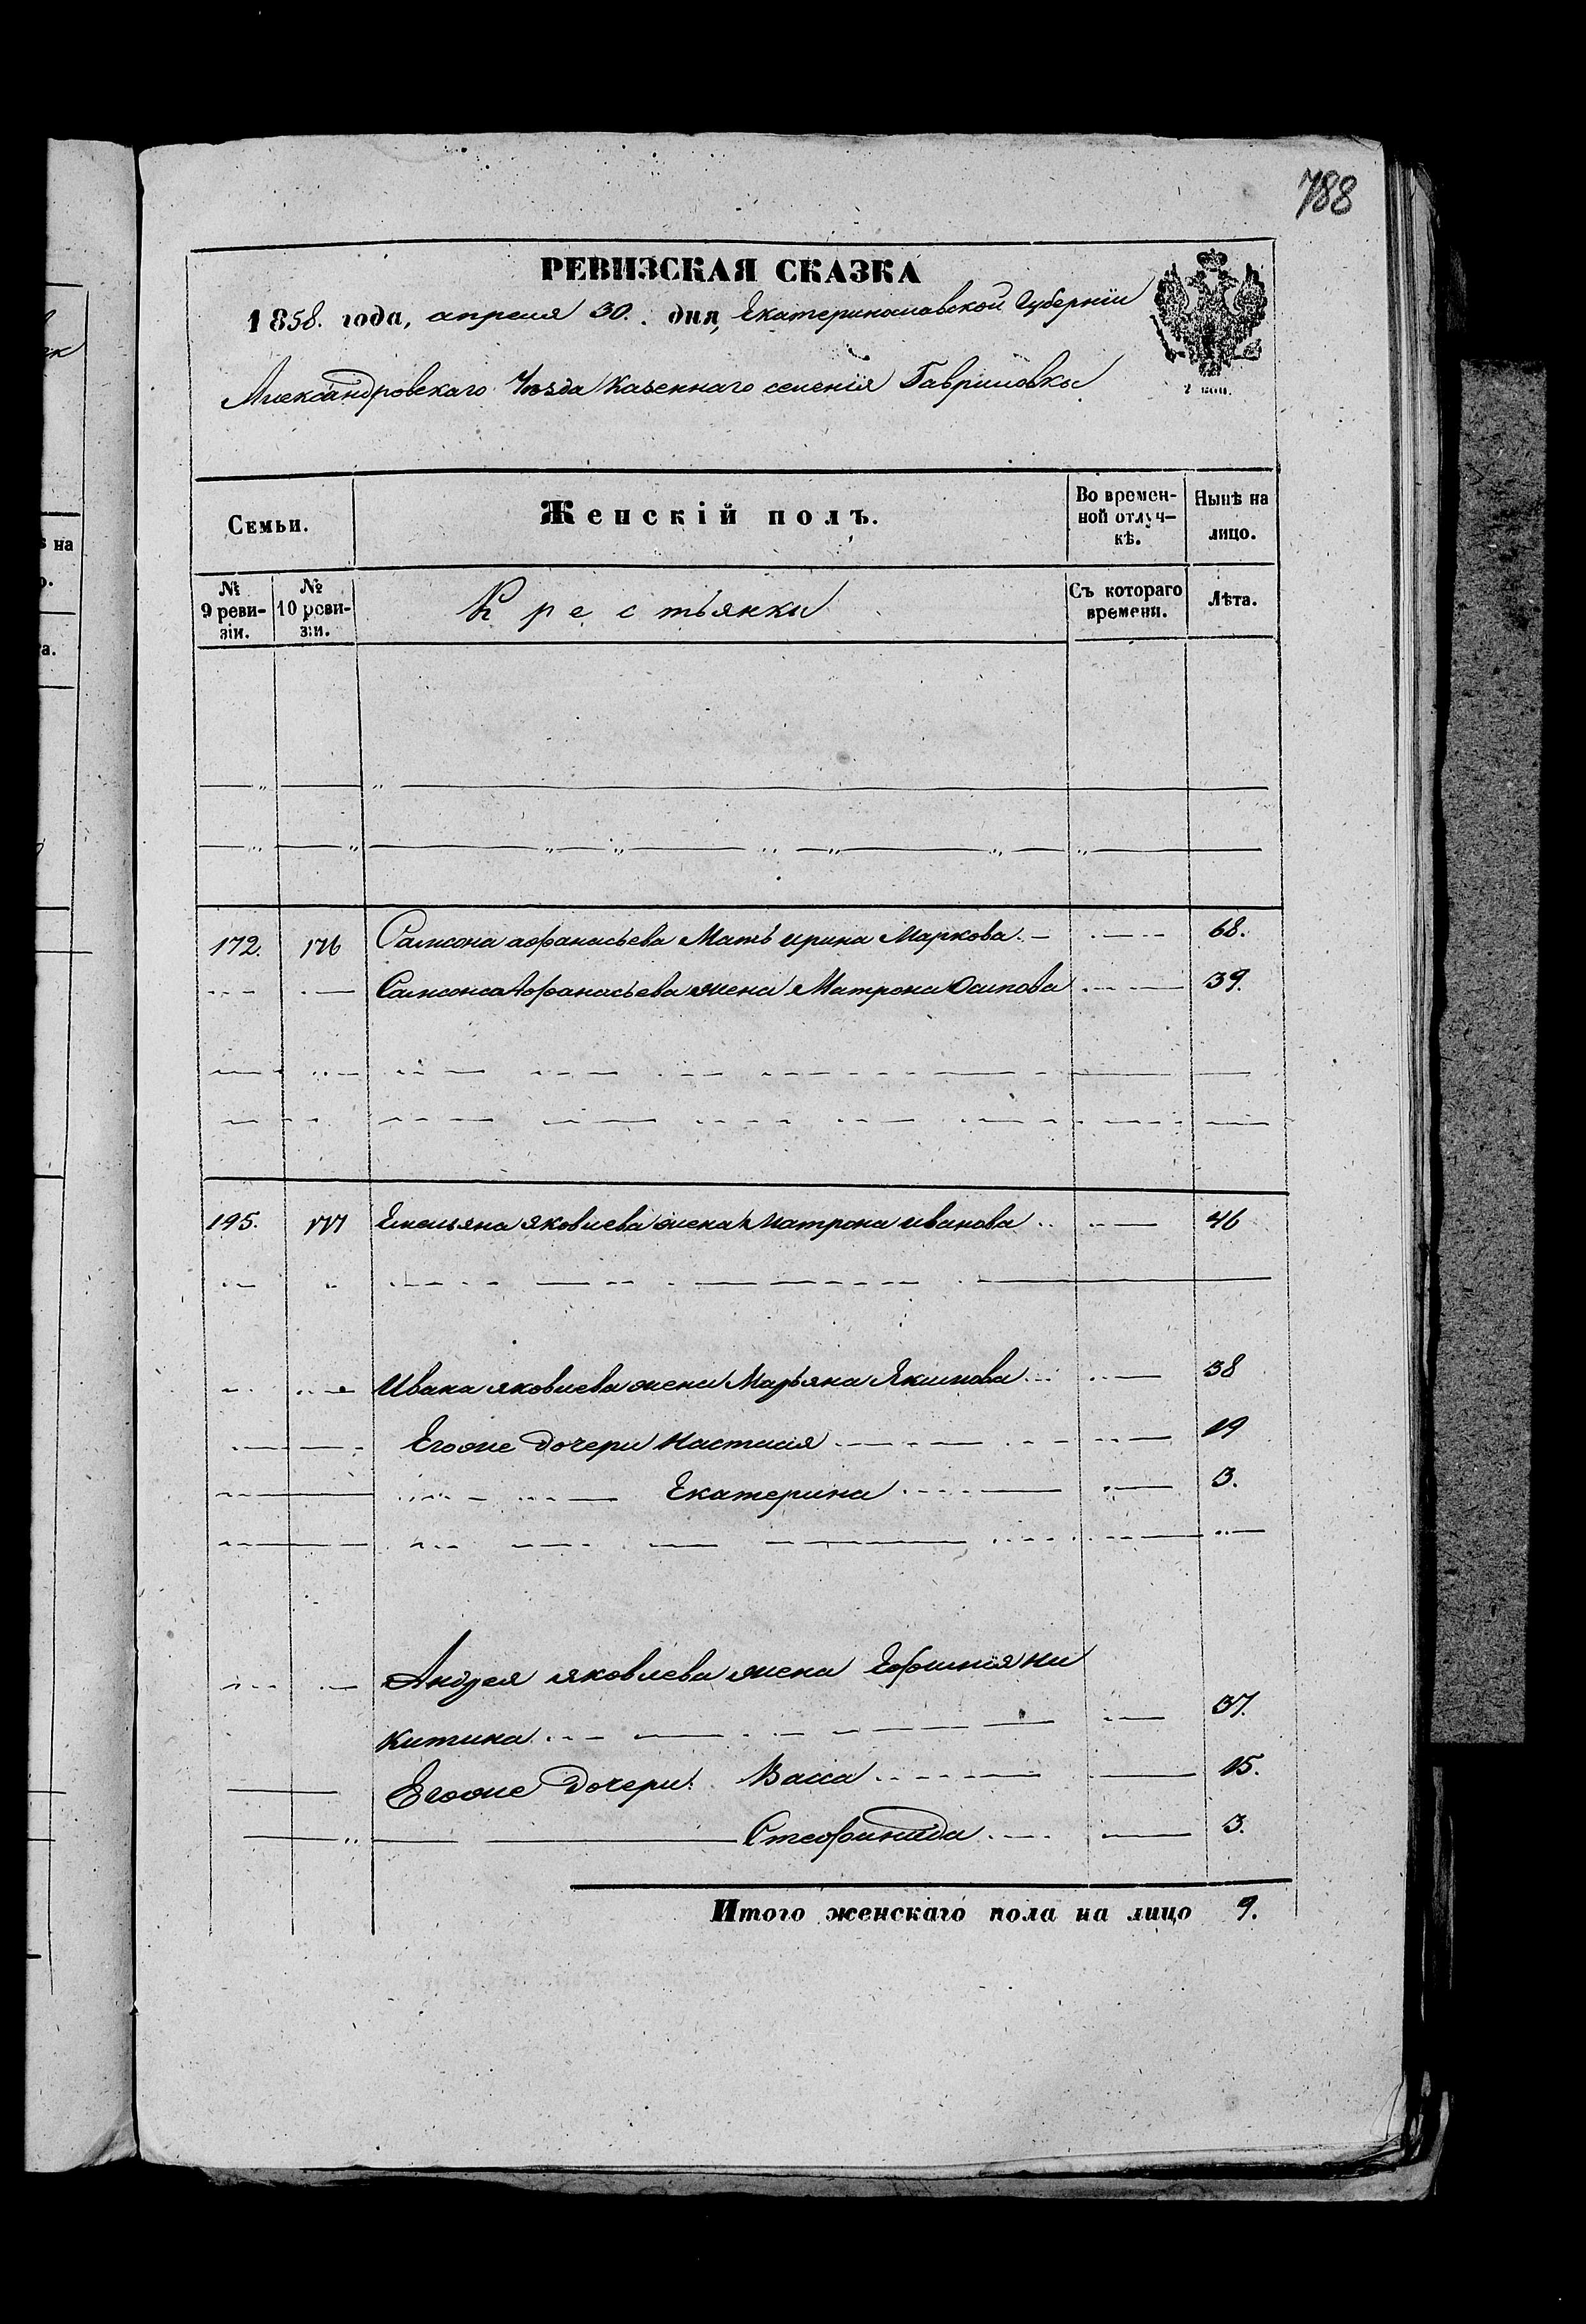 788
РЕВИЗСКАЯ СКАЗКА
1858. года, апреля 30. дня, Екатеринославской Губерніи
Александровскаго Уѣзда Казеннаго селенія Гавриловки
2 коп.
Семьи. Женскій полъ. Во времен-ной отлуч-кѣ. Нынѣ на лицо.
№ 9 реви-зіи. № 10 реви-зіи. Крестьянки Съ котораго времени. Лѣта.
172. 176 Самсона афанасьева Мать ирина Маркова. 68.
Самсона Афанасьева жена Матрона Осипова 39.
195. 177 Емельяна яковлева жена Матрона иванова 46
Ивана яковлева жена Марьяна Якимова 38
Егоже дочери Настасия 19
Екатерина 3.
Андрея яковлева жена Ефимия Ни
китина 37.
Егоже Дочери: Васса 15.
Стефанида 3.
Итого женскаго пола на лицо 9.
на
а.